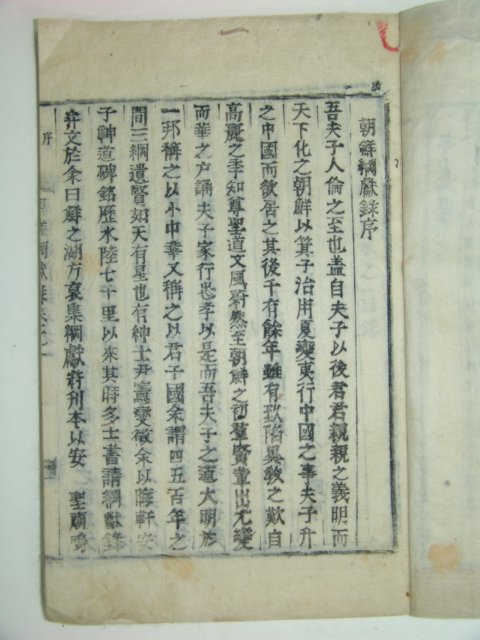 朝鮮綱獻錄序
吾夫子人倫之至也盖自夫子以後君君親親之義明而
天下化之朝鮮以箕子治用夏變夷行中國之事夫子升
之中國而欲居之其後千有餘年雖有 陷異敎之歎自
高麗之季知尊聖道文風蔚然至朝鮮之初羣賢輩出尤變
而華之戶誦夫子家行忠孝以是而吾夫子之道大明於
一邦稱之以小中華又稱之以君子國余謂四五百年之
間三綱遺賢如天有星也有紳士尹憲燮徵余以晦軒安
子神道碑銘歷水陸七千里以來其時多士書請綱獻錄
弁文於余曰鮮之湖方裒集綱獻將刊本以安 聖廟
序